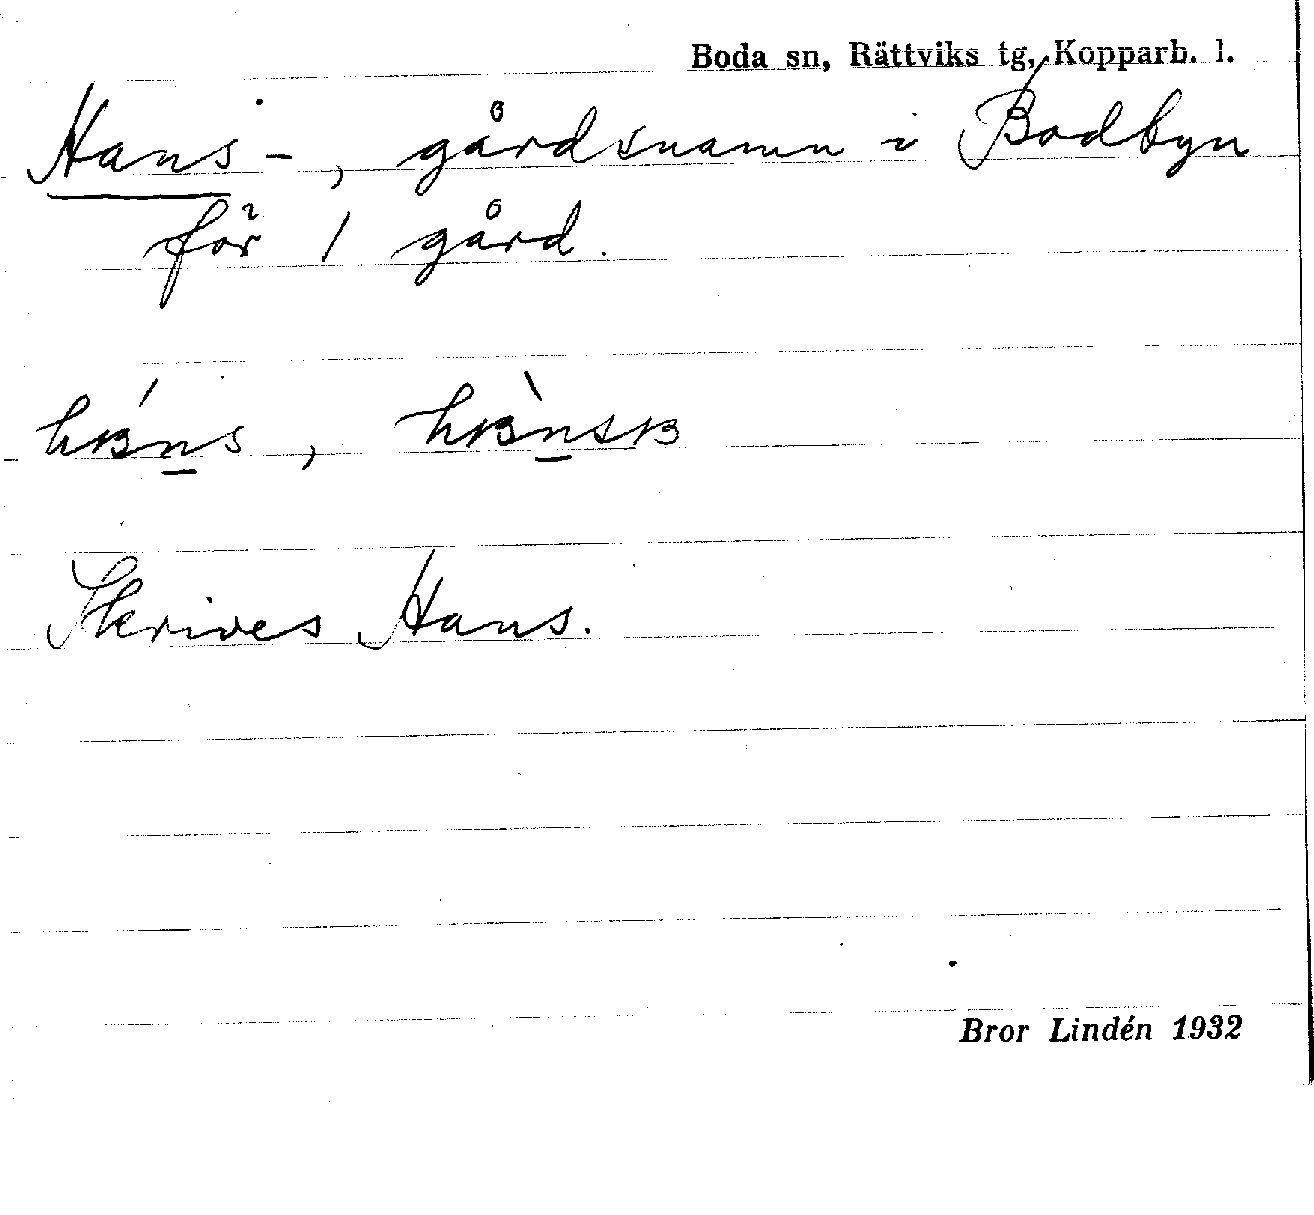 Boda sn, Rättviks tg, Kopparb. l.
Hans-, gårdsnamn i Bodbyn
för 1 gård.
Skrives Hans.
Bror Lindén 1932